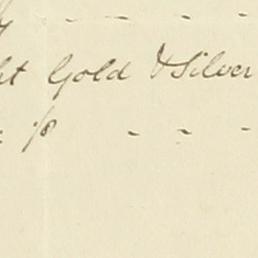 - - - -
ht Gold & Silver
: % - - -